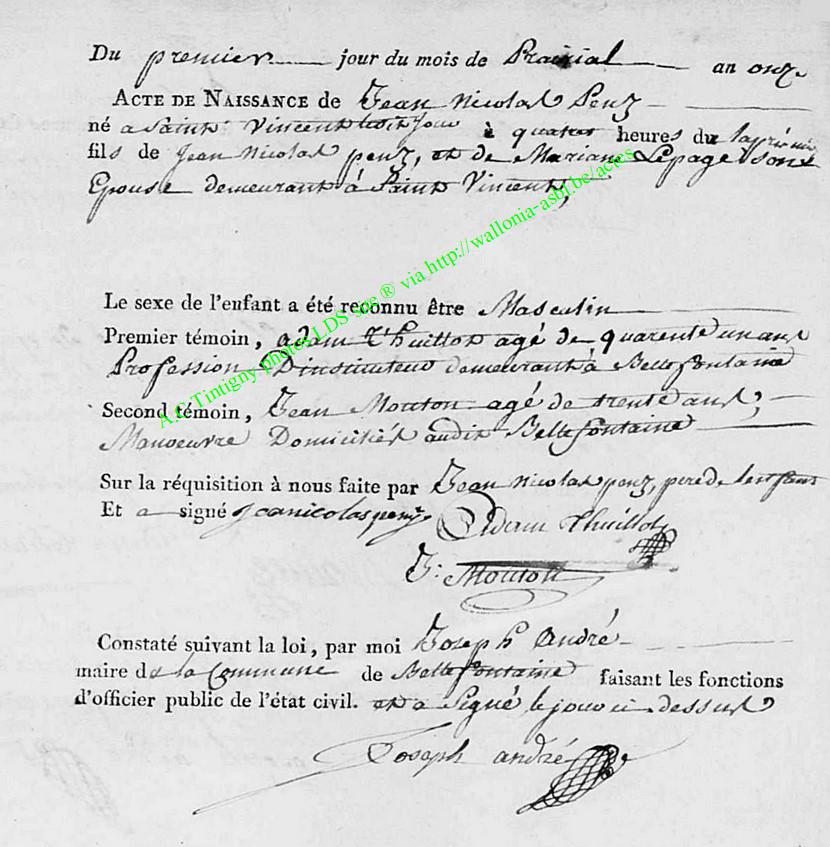 Du premier jour du mois de Prairial an onze
ACTE DE NAISSANCE de Jean Nicolas Penz
né a Saint Vincent jour à quatre heures du
fils de Jean Nicolas penz, et de Mariane Lepage son
Epouse demeurant à Saint Vincent,
Le sexe de l'enfant a été reconnu être Masculin
Premier témoin, adam Thuillot agé de quarente un ans
Profession D'instituteur demeurant à Bellefontaine
Second témoin, Jean Mouton agé de trente ans,
Manoeuvre Domicilié audit Bellefontaine
Sur la réquisition à nous faite par Jean Nicolas penz, pere de
Et a signé jeanicolas penz Adam Thuillot
J: Mouton
Constaté suivant la loi, par moi Joseph André
maire de la Commune de Bellefontaine faisant les fonctions
d'officier public de l'état civil. et a Signé le jour ci dessus
Joseph andré
A.C Tintigny photos LDS site ® via http://wallonia-asbl.be/actes